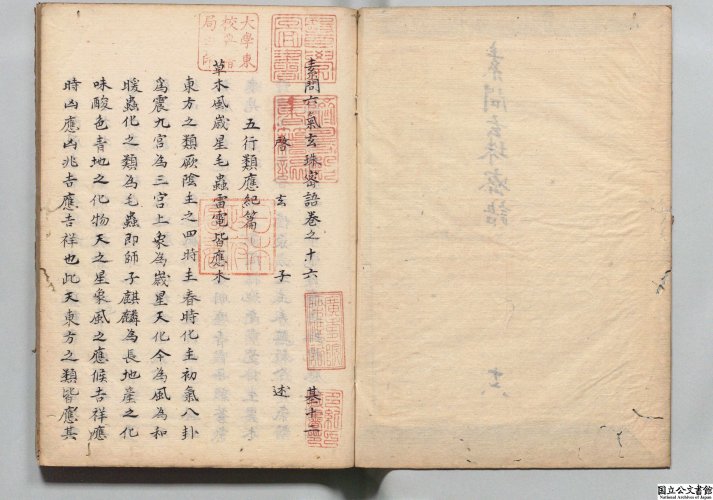 素問六氣玄珠密語卷之十六 基十二
啓玄子述
五行類應紀篇
草木風歲星毛蟲雷電皆應木
東方之類厥陰主之四時主春時化主初氣八卦
為震九宮為三宮上象為歲星天化令為風為和
暖蟲化之類為毛蟲即師子麒麟為長地產之化
味酸色青地之化物天之星象風之應候吉祥應
時凶應凶兆吉應吉祥也此天東方之類皆應其
大學東校
素問玄珠密語
十六
国立公文書館
National Archives of Japan